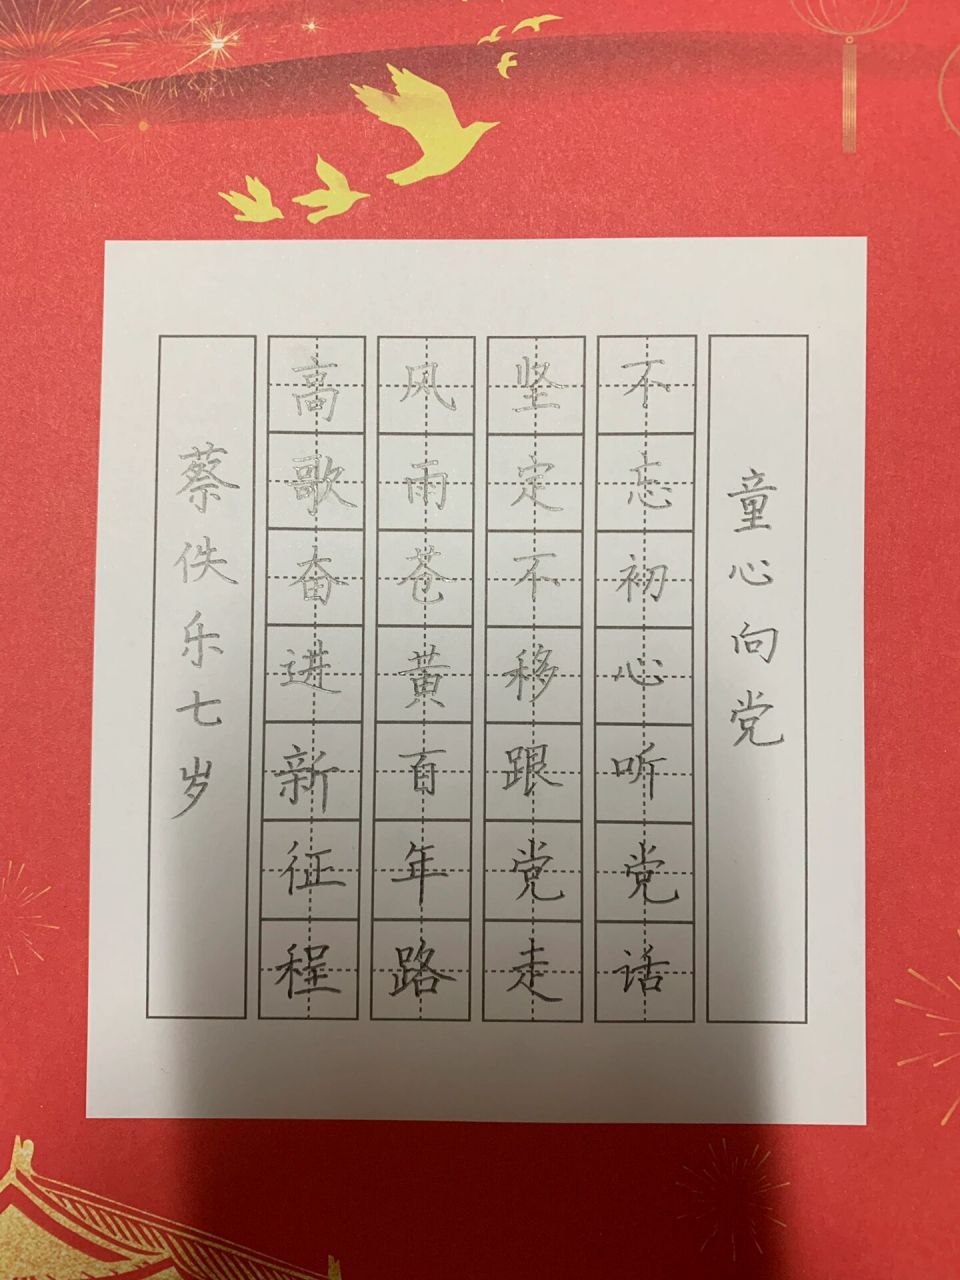 童心向党
不忘初心听党话
坚定不移跟党走
风雨苍黄百年路
高歌奋进新征程
蔡佚乐七岁